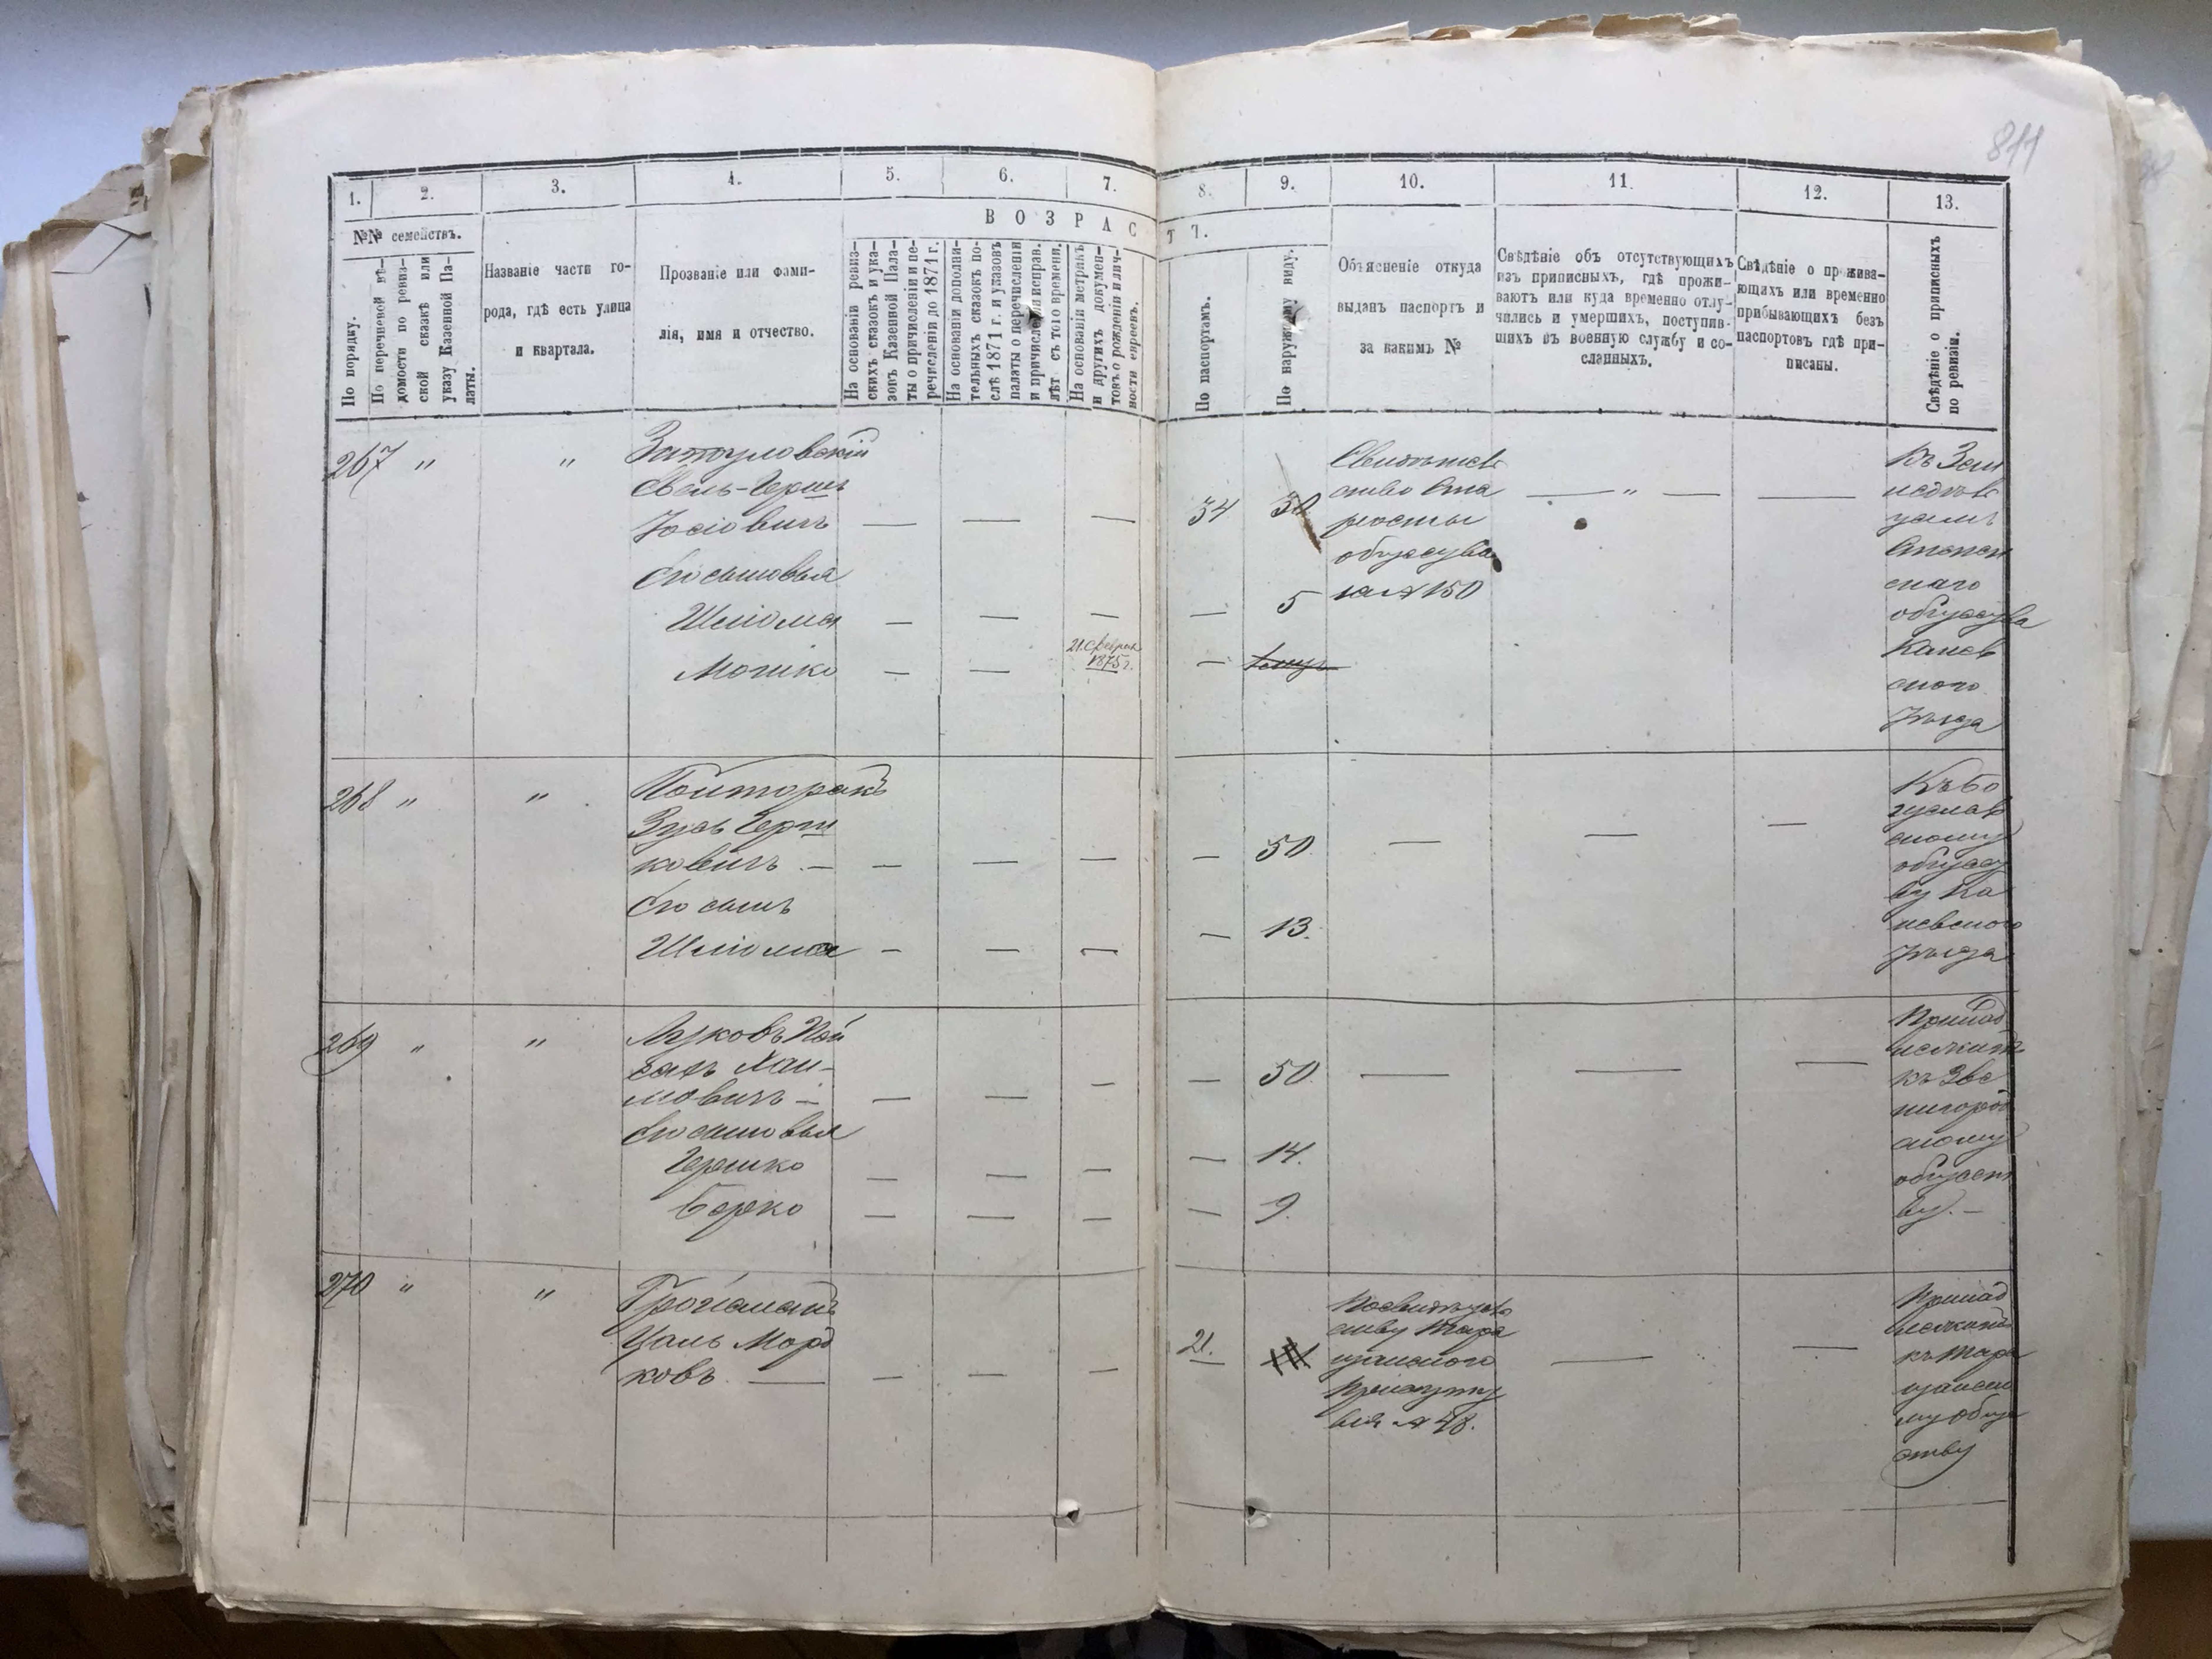 811
1.
2.
3.
4.
5.
6.
7.
8.
9.
10.
11.
12.
13.
№№ семействъ.
ВОЗРАСТ
Ъ.
По порядку.
По перечневой вѣ-
домости по ревиз-
ской сказкѣ или
указу Казенной Па-
латы.
Названіе части го-
рода, гдѣ есть улица
и квартала.
Прозваніе или фами-
лія, имя и отчество.
На основаніи ревиз-
скихъ сказокъ и ука-
зовъ Казенной Пала-
ты о причисленіи и пе-
речисленіи до 1871 г.
На основаніи дополни-
тельныхъ сказокъ по-
слѣ 1871 г. и указовъ
палаты о перечисленіи
и причисленіи исправ.
лѣт съ того времени.
На основаніи метрикъ
и другихъ докумен-
товъ о рожденіи и лич-
ности евреевъ.
По паспортамъ.
По наружному виду.
Объясненіе откуда
выданъ паспортъ и
за какимъ №
Свѣдѣніе объ отсутствующихъ
изъ приписныхъ, гдѣ прожи-
ваютъ или куда временно отлу-
чились и умершихъ, поступив-
шихъ въ военную службу и со-
сланныхъ.
Свѣдѣніе о прожива-
ющихъ или временно
прибывающихъ безъ
паспортовъ гдѣ при-
писаны.
Свѣдѣніе о приписныхъ
по ревизіи.
267 " "
Затуловскій
Свель-Герш
Іосіовичъ — — — 34 30
Его сыновья
Шліома — — — — 5
Мошко — — 21. Февраля
1875 г. —
Свидѣтель
ство Ста
росты
общества
за № 150
— " — —
Къ Зем
ледѣль
цамъ
Степан
скаго
общества
Канев
скаго
уѣзда
268 " "
Полторакъ
Зусь Герш
ковичъ — — — — — 50 — — —
Его сынъ
Шліома — — — — 13.
Къ Бо
гуслав
скому
общест
ву Ка
невскаго
уѣзда
269 " "
Лусковъ Пей
сахъ Хаи-
мовичъ — — — — — 50 — — —
Его сыновья
Гершко — — — — 14.
Берко — — — — 9.
Принад
лежитъ
къ Зве
нигород
скому
общест
ву. —
270 " "
Гройсманъ
Цаль Морд
ковъ — — — — 21.
По свидѣтель
ству Тара
щанского
Присутст
вія № 48.
— —
Принад
лежитъ
къ Тара
щанско
му обще
ству